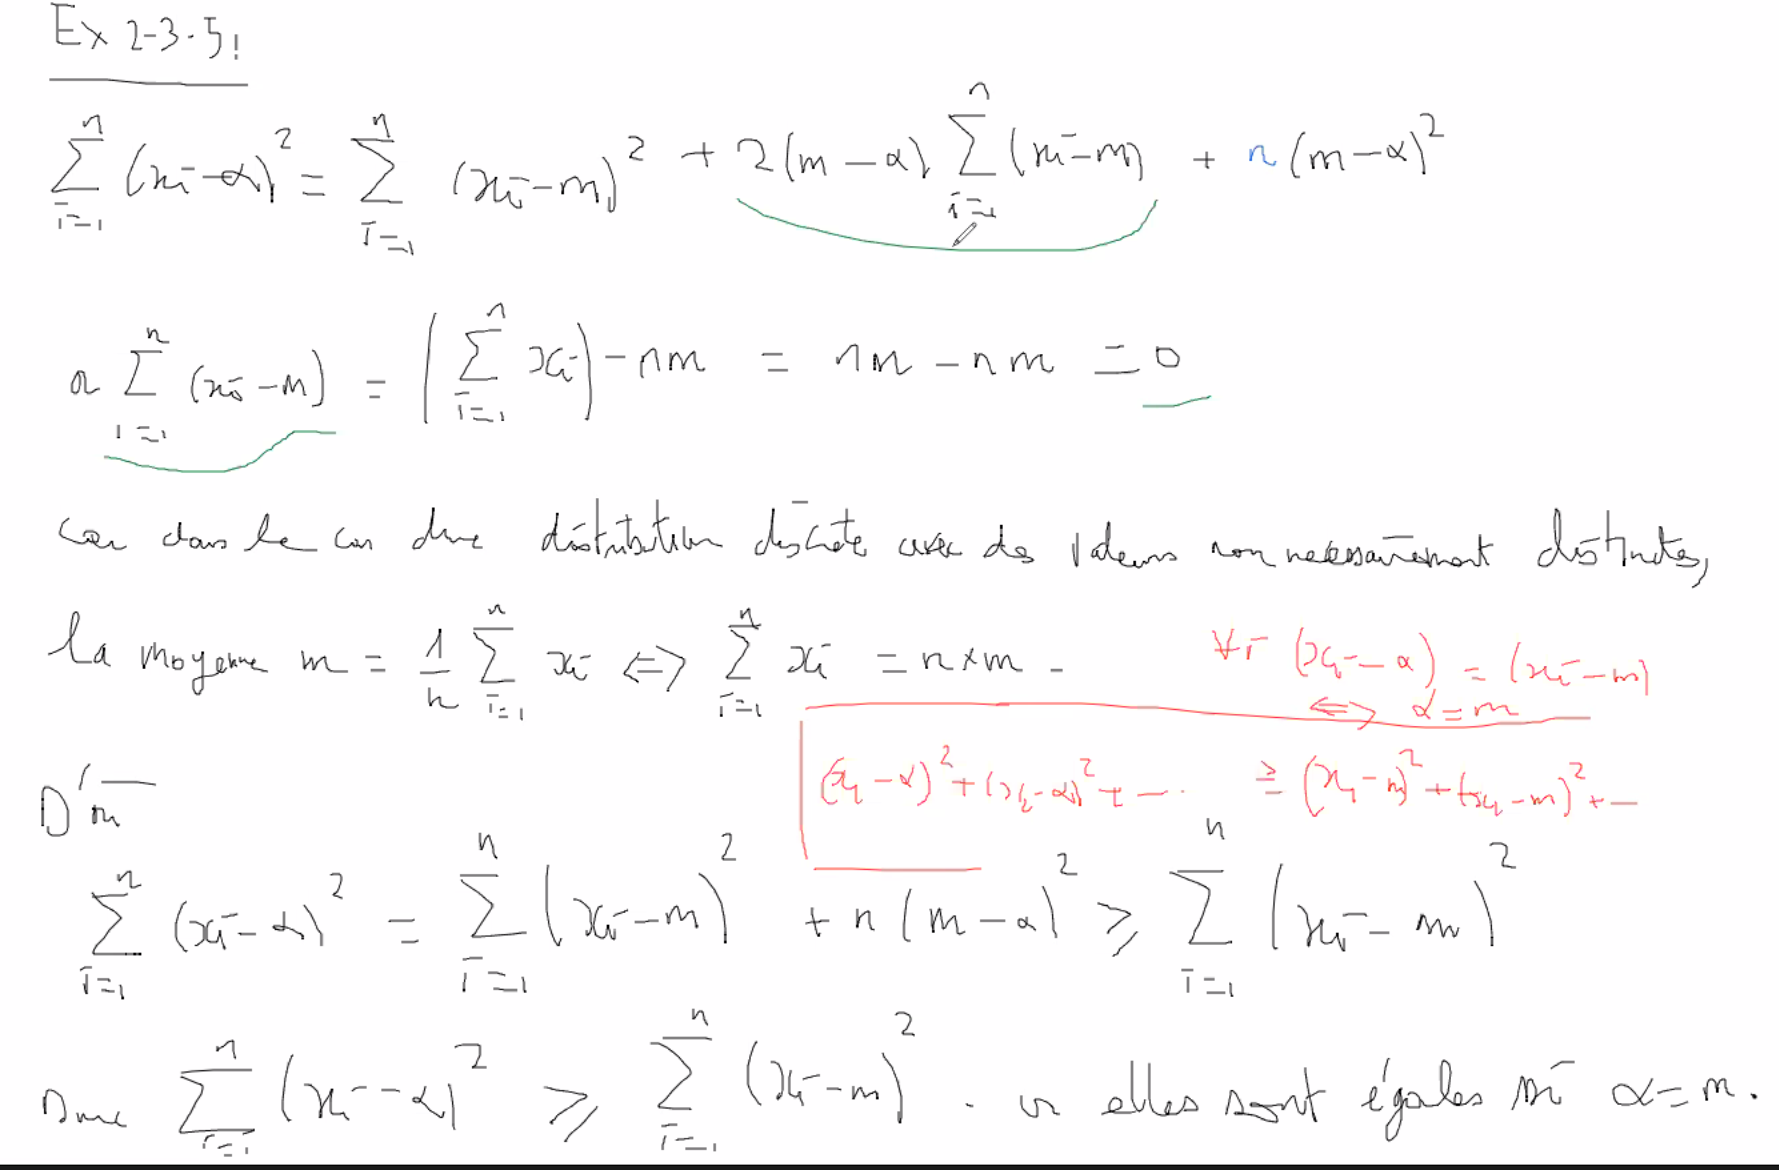 Ex 2-3-5!
∑_{i=1}^{n} (xi-α)² = ∑_{i=1}^{n} (xi-m)² + 2(m-α) ∑_{i=1}^{n} (xi-m) + n(m-α)²
or ∑_{i=1}^{n} (xi-m) = (∑_{i=1}^{n} xi) - nm = nm - nm = 0
car dans le cas d'une distribution discrète avec des valeurs non nécessairement distinctes,
la moyenne m = 1/n ∑_{i=1}^{n} xi ⇔ ∑_{i=1}^{n} xi = n×m -
∀i (xi-α) = (xi-m)
⇔ α=m
(x1-α)²+(x2-α)²+-.. ≥ (x1-m)²+(x2-m)²+-
D'où
∑_{i=1}^{n} (xi-α)² = ∑_{i=1}^{n} (xi-m)² + n(m-α)² ⩾ ∑_{i=1}^{n} (xi-m)²
Donc ∑_{i=1}^{n} (xi-α)² ⩾ ∑_{i=1}^{n} (xi-m)². elles sont égales si α=m.